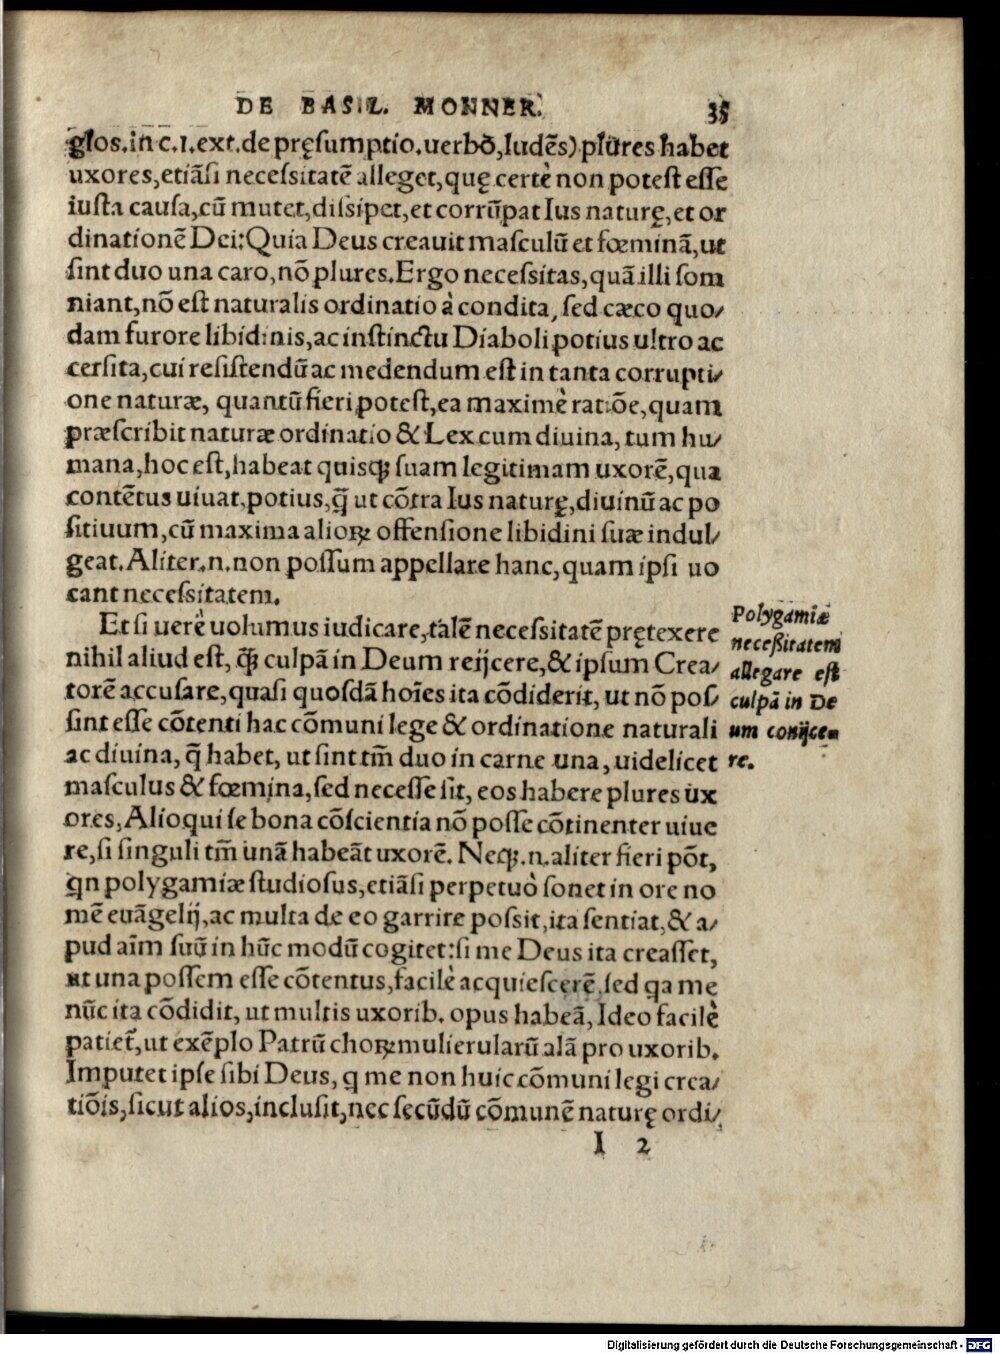 DE BASIL. MONNER. 35
glos.in c.1.ext.de pręsumptio.uerbō,Iudēs) plures habet
uxores,etiāsi necessitatē alleget,quę certè non potest esse
iusta causa,cū mutet,dissipet,et corrūpat Ius naturę,et or
dinationē Dei:Quia Deus creauit masculū et fœminā,ut
sint duo una caro,nō plures.Ergo necessitas,quā illi som
niant,nō est naturalis ordinatio à condita, sed cæco quo/
dam furore libidinis,ac instinctu Diaboli potius ultro ac
cersita,cui resistendū ac medendum est in tanta corrupti/
one naturæ, quantū fieri potest,ea maximè ratiōe,quam
præscribit naturæ ordinatio & Lex cum diuina, tum hu/
mana,hoc est,habeat quisqꝫ suam legitimam uxorē,qua
contētus uiuat,potius,q̄ ut cōtra Ius naturę,diuinū ac po
sitiuum,cū maxima alioꝝ offensione libidini suæ indul/
geat.Aliter.n.non possum appellare hanc,quam ipsi uo
cant necessitatem.
Et si uerè uolumus iudicare,talē necessitatē prętexere
nihil aliud est, q̄ꝫ culpā in Deum reijcere,& ipsum Crea/
torē accusare,quasi quosdā hoīes ita cōdiderit, ut nō pos/
sint esse cōtenti hac cōmuni lege & ordinatione naturali
ac diuina, q̄ habet, ut sint tm̄ duo in carne una, uidelicet
masculus & fœmina,sed necesse sit, eos habere plures ux
ores,Alioqui se bona cōscientia nō posse cōtinenter uiue
re,si singuli tm̄ unā habeāt uxorē. Neqꝫ.n.aliter fieri pōt,
qn polygamiæ studiosus,etiāsi perpetuò sonet in ore no
mē euāgelij,ac multa de eo garrire possit,ita sentiat,& a/
pud aīm suū in hūc modū cogitet:si me Deus ita creasset,
ut una possem esse cōtentus,facilè acquiescerē,sed qa me
nūc ita cōdidit, ut multis uxorib. opus habeā, Ideo facilè
patiet̄,ut exēplo Patrū choꝝ mulierularū alā pro uxorib.
Imputet ipse sibi Deus, q me non huic cōmuni legi crea/
tiōis,sicut alios,inclusit,nec secūdū cōmunē naturę ordi/
I 2
Polygamiæ
necessitatem
allegare est
culpā in De
um conijce=
re.
Digitalisierung gefördert durch die Deutsche Forschungsgemeinschaft - DFG